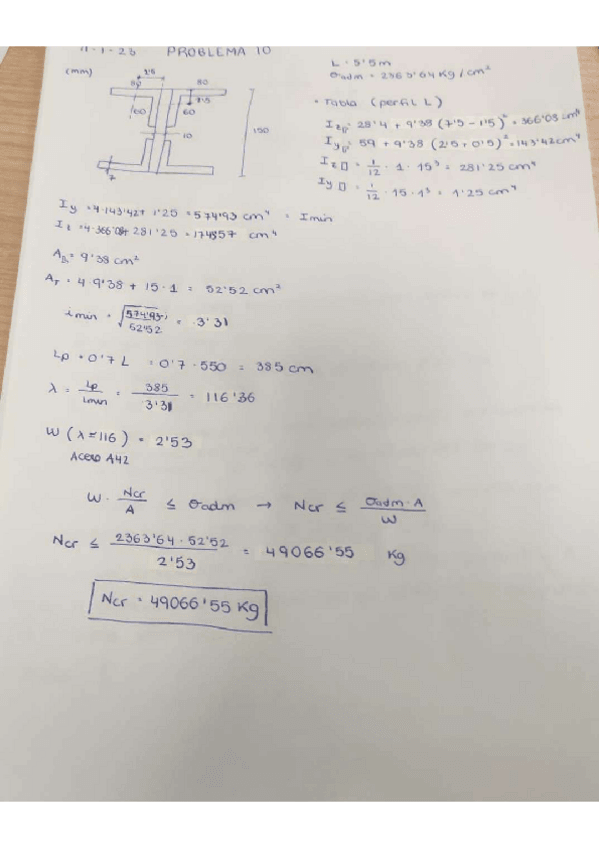 11-1-23 PROBLEMA 10
(mm)
80
80
60
60
10
150
7
L = 5'5 m
σadm = 2363'64 Kg/cm²
• Tabla (perfil L)
28'4 + 9'38 (7'5 - 1'5)² = 366'08 cm⁴
59 + 9'38 (2'5 + 0'5)² = 143'42 cm⁴
Iz▯ = 1/12 · 1 · 15³ = 281'25 cm⁴
Iy▯ = 1/12 · 15 · 1³ = 1'25 cm⁴
Iy = 4·143'42 + 1'25 = 574'93 cm⁴ = Imin
= 4·366'08 + 281'25 = 1745'57 cm⁴
= 9'38 cm²
AT = 4·9'38 + 15·1 = 52'52 cm²
imin = √574'93/52'52 = 3'31
Lp = 0'7 L = 0'7 · 550 = 385 cm
λ = Lp/imin = 385/3'31 = 116'36
W (λ=116) = 2'53
ACERO A42
W · Ncr/A ≤ σadm → Ncr ≤ σadm·A/W
Ncr ≤ 2363'64 · 52'52/2'53 = 49066'55 Kg
Ncr = 49066'55 Kg